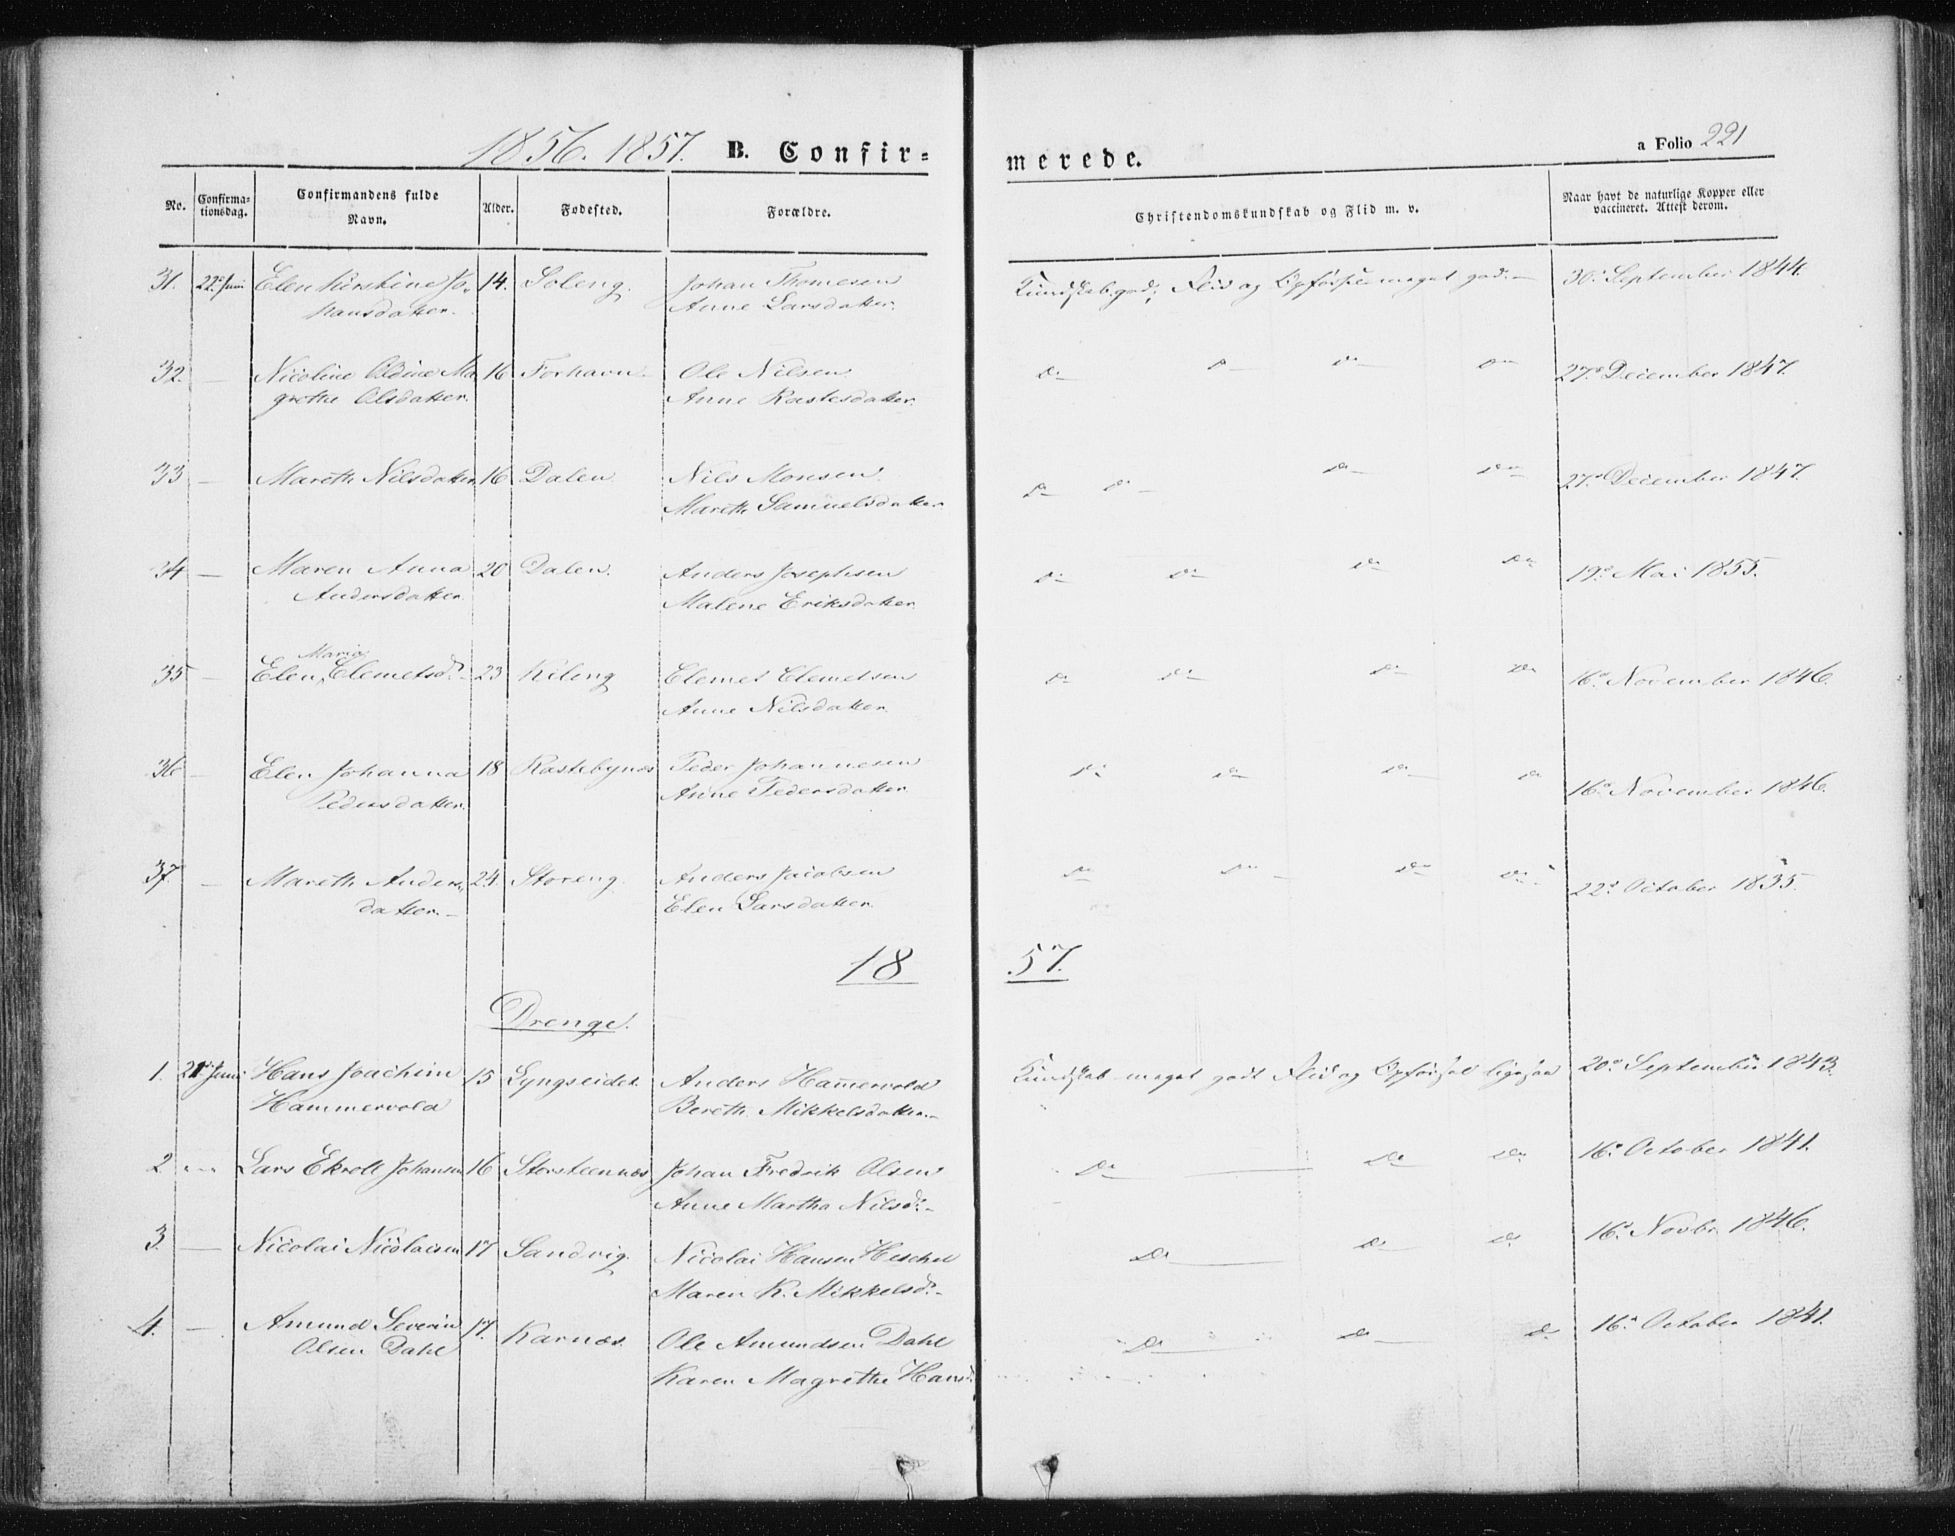 1856. 1857. B. Confir= merede. a Folio 221
No. Confirma-tionsdag. Confirmandens fulde Navn. Alder. Fødested. Forældre. Christendomskundskab og Flid m. v. Naar havt de naturlige Kopper eller vaccineret. Attest derom.
31. 22de Juni Elen Kirstine Jo- 14. Soleng. Johan Thomesen Kundskab god; Flid og Opførsel meget god.- 30. September 1844.
hansdatter. Anne Larsdatter.
32. — Nicoline Ma 16 Forhavn. Ole Nilsen Do Do Do Do 27de December 1847.
grethe Olsdatter. Anne Rastesdatter.
33 — Mareth Nilsdatter 16 Dalen. Nils Monsen. Do Do Do Do 27de December 1847.
Mareth Samuelsdatter
34 — Maren Anna 20 Dalen. Anders Josephsen Do Do Do Do 19de Mai 1855.
Andersdatter. Malene Eriksdatter.
Maria
35 — Elen Clemetsdr. 23 Kileng Clemet Clemetsen Do Do Do Do 16de November 1846.
Anne Nilsdatter.
36 — Elen Johanna 18 Rastebynæs Peder Johannesen Do Do Do Do 16de November 1846.
Pedersdatter. Anne Pedersdatter.
37. — Mareth Anders- 24. Storeng. Anders Jacobsen Do Do Do Do 22de October 1835.
datter.- Elen Larsdatter.
18 57.
Drenge.
1. 21de Juni Hans Joachim 15 Lyngseidet Anders Hammervold Kundskab meget godt Flid og Opførsel ligesaa 20de September 1843.
Hammervold Bereth Mikkelsdatter.-
2 — Lars Ekroll Johansen 16 Storsteennæs Johan Fredrik Olsen Do Do Do 16de October 1841.
Anne Martha Nilsdr.-
3. — Nicolai Nicolaisen 17 Sandvig. Nicolai Hansen Heschel Do Do Do 16de Novbr. 1846.
Maren K. Mikkelsdr.-
4. — Amund Severin 17. Karnæs. Ole Amundsen Dahl Do Do Do 16de October 1841.
Olsen Dahl Karen Magrethe Hansd.